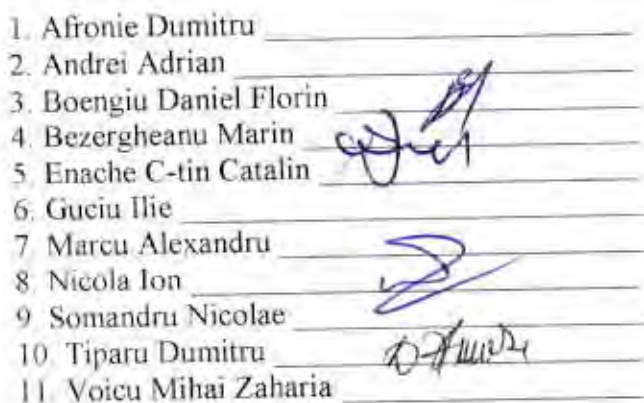 1. Afronie Dumitru
2. Andrei Adrian
3. Boengiu Daniel Florin
4. Bezergheanu Marin
5. Enache C-tin Catalin
6. Guciu Ilie
7. Marcu Alexandru
8. Nicola Ion
9. Somandru Nicolae
10. Tiparu Dumitru
11. Voicu Mihai Zaharia